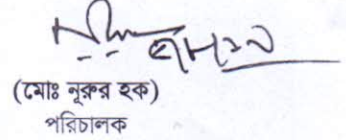 (মোঃ নূরুর হক)
পরিচালক